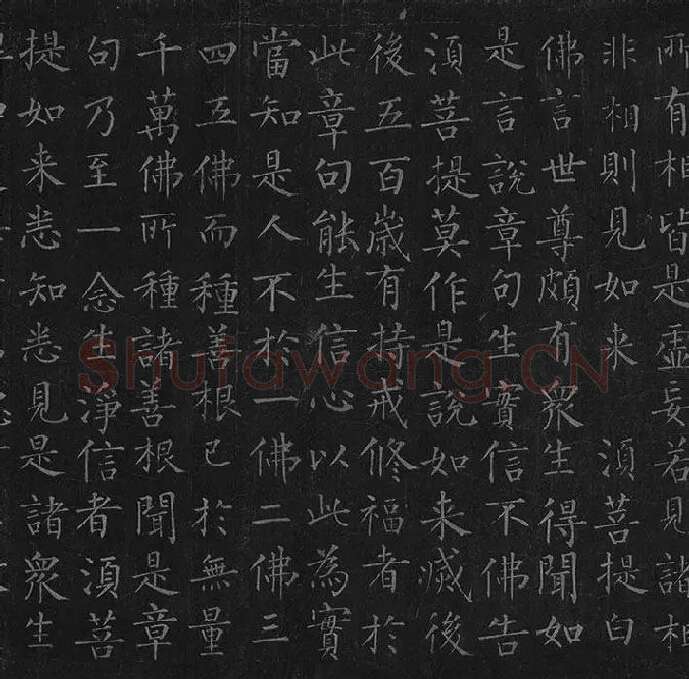 所有相皆是虛妄若見諸相
非相則見如来 須菩提白
佛言世尊頗有衆生得聞如
是言說章句生實信不佛告
須菩提莫作是說如来滅後
後五百歲有持戒修福者於
此章句能生信心以此為實
當知是人不於一佛二佛三
四五佛而種善根已於無量
千萬佛所種諸善根聞是章
句乃至一念生淨信者須菩
提如来悉知悉見是諸衆生
Shufawang.CN